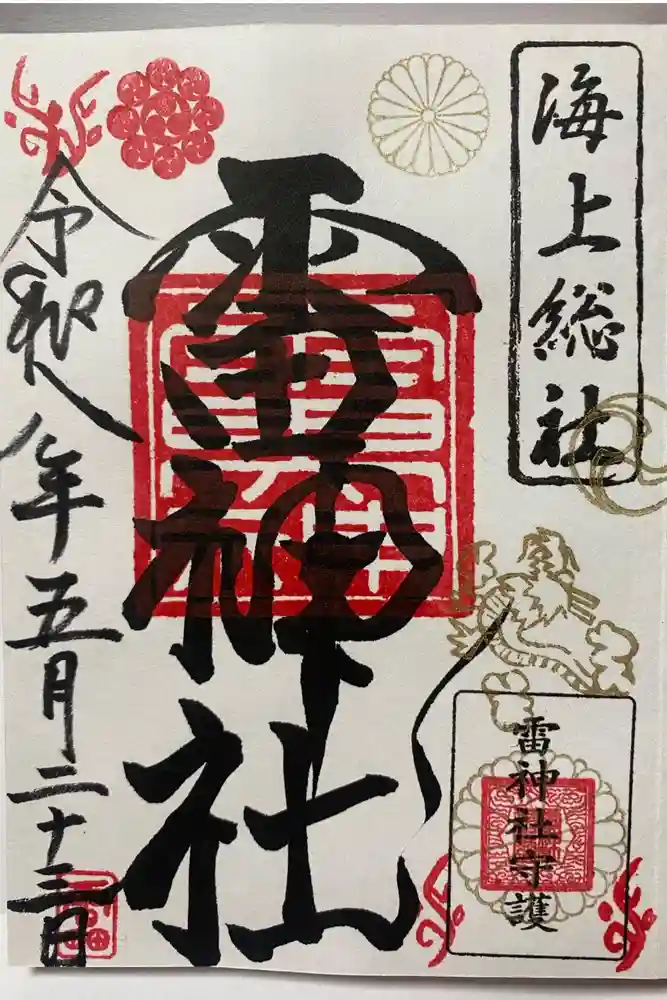 海上総社
雷神社
雷神社守護
令和八年五月二十三日